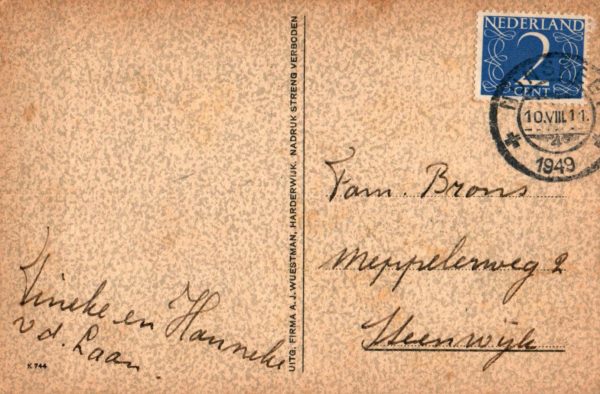 NEDERLAND
2
CENT
10.VIII.11.
1949
Fam. Brons
Meppelerweg 2
Steenwijk
Tineke en Hanneke
v.d. Laan.
UITG. FIRMA A. J. WUESTMAN, HARDERWIJK. NADRUK STRENG VERBODEN
K 744